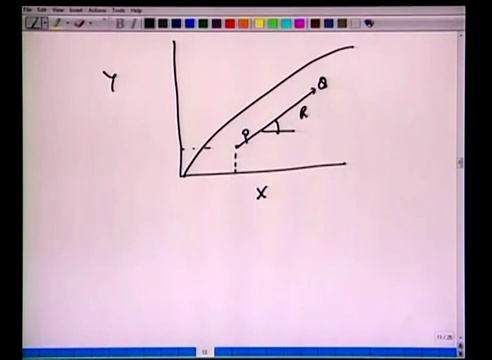 File Edit View Insert Actions Tools Help
B I
Y
Q
R
P
X
13
11/25